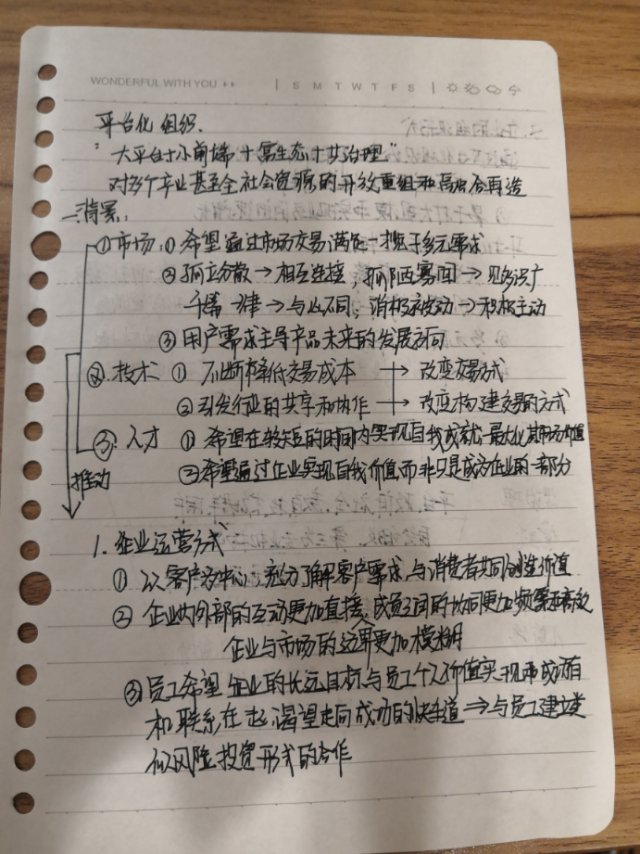 WONDERFUL WITH YOU
S M T W T F S
平台化 组织.
"大平台+小前端+富生态+共治理"
对多个产业甚至全社会资源的开放重组和高度合再造
一.背景:
①市场:①希望通过市场交易满足一揽子多元需求
②孤立分散→相互连接,孤陋寡闻→见多识广
千篇一律→与众不同;消极被动→积极主动
③用户需求主导产品未来的发展方向
②.技术 ①不断降低交易成本 → 改变交易方式
②引发行业的共享和协作 → 改变构建交易的方式
③.人才 ①希望在较短的时间内实现自我成就最大化其市场价值
②希望通过企业实现自我价值而非只是成为企业的一部分
推动
1.企业运营方式
①以客户为中心,充分了解客户需求,与消费者共同创造价值
②企业内外部的互动更加直接,成员之间的协同更加频繁而高效
企业与市场的边界更加模糊
③员工希望企业的长远目标与员工个人价值实现和成就有
和联系在一起,渴望走向成功的快车道⇒与员工建立类
似风险投资形式的合作